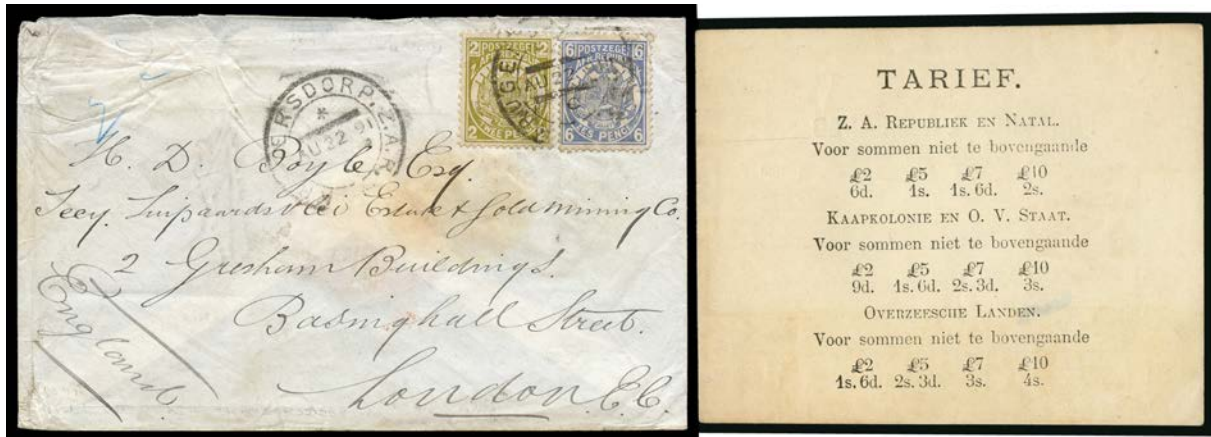 2 POSTZEGEL 2
2 TWEE PENCE 2
6 POSTZEGEL 6
AFR. REPUBL
6 ZES PENCE 6
RSDORP. Z.A.R.
*
AU 22 91
H. D. Boyle Esq.
Secy. Luipaardsvlei Estate & Gold Mining Co.
2 Gresham Buildings.
Basinghall Street.
London E.C.
England
TARIEF.
Z. A. REPUBLIEK EN NATAL.
Voor sommen niet te bovengaande
£2 £5 £7 £10
6d. 1s. 1s. 6d. 2s.
KAAPKOLONIE EN O. V. STAAT.
Voor sommen niet te bovengaande
£2 £5 £7 £10
9d. 1s. 6d. 2s. 3d. 3s.
OVERZEESCHE LANDEN.
Voor sommen niet te bovengaande
£2 £5 £7 £10
1s. 6d. 2s. 3d. 3s. 4s.